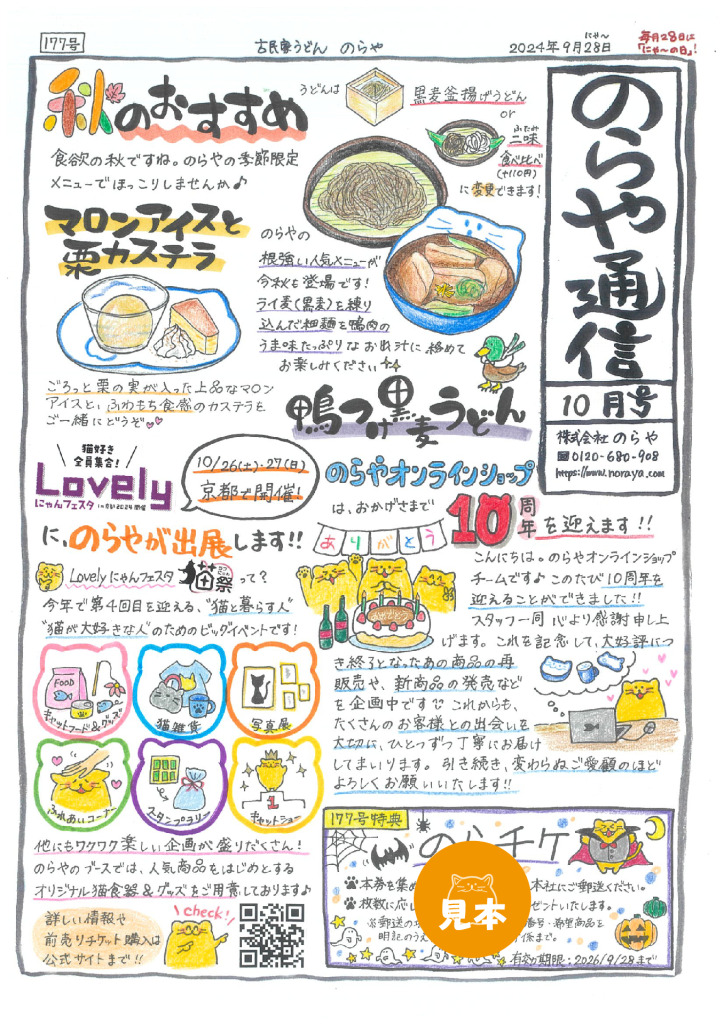 177号
古民家うどん のらや
2024年9月28日
にゃ〜
毎月28日に
「にゃ〜の日」!
のらや通信
10月号
株式会社 のらや
0120-680-908
https://www.noraya.com
秋のおすすめ
食欲の秋ですね。のらやの季節限定
メニューでほっこりしませんか♪
マロンアイスと
栗カステラ
ごろっと栗の実が入った上品なマロン
アイスと、ふわもち食感のカステラを
ご一緒にどうぞ
うどんは
黒麦釜揚げうどん
or
ふたみ
二味
食べ比べ
(+110円)
に変更できます!
のらやの
根強い人気メニューが
今秋も登場です!
ライ麦(黒麦)を練り
込んだ細麺を鴨肉の
うま味たっぷりなお出汁に絡めて
お楽しみください
鴨つけ黒麦うどん
猫好き
全員集合!
Lovely
にゃんフェスタ in 京都 2024 開催
10/26(土)・27(日)
京都で開催!
に、のらやが出展します!!
Lovelyにゃんフェスタ 猫祭 って?
今年で第4回目を迎える、"猫と暮らす人"
"猫が大好きな人"のためのビッグイベントです!
FOOD
キャットフード&グッズ
猫雑貨
写真展
ふれあいコーナー
スタンプラリー
1
キャットショー
他にもワクワク楽しい企画が盛りだくさん!
のらやのブースでは、人気商品をはじめとする
オリジナル猫食器&グッズをご用意しております♪
詳しい情報や
前売りチケット購入は
公式サイトまで!!
check!
のらやオンラインショップ
は、おかげさまで
10周年を迎えます!!
ありがとう
こんにちは。のらやオンラインショップ
チームです♪このたび10周年を
迎えることができました!!
スタッフ一同 心より感謝申し上
げます。これを記念して、大好評につ
き終了となったあの商品の再
販売や、新商品の発売など
を企画中です これからも、
たくさんのお客様との出会いを
大切に、ひとつずつ丁寧にお届け
してまいります。引き続き、変わらぬご愛顧のほど
よろしくお願いいたします!!
177号特典
のらチケ
本券を集め
本社にご郵送ください。
枚数に応じ
ゼントいたします。
※郵送の
番号・希望商品を
明記のうえ
係まで。
有効期限:2026/9/28まで
見本